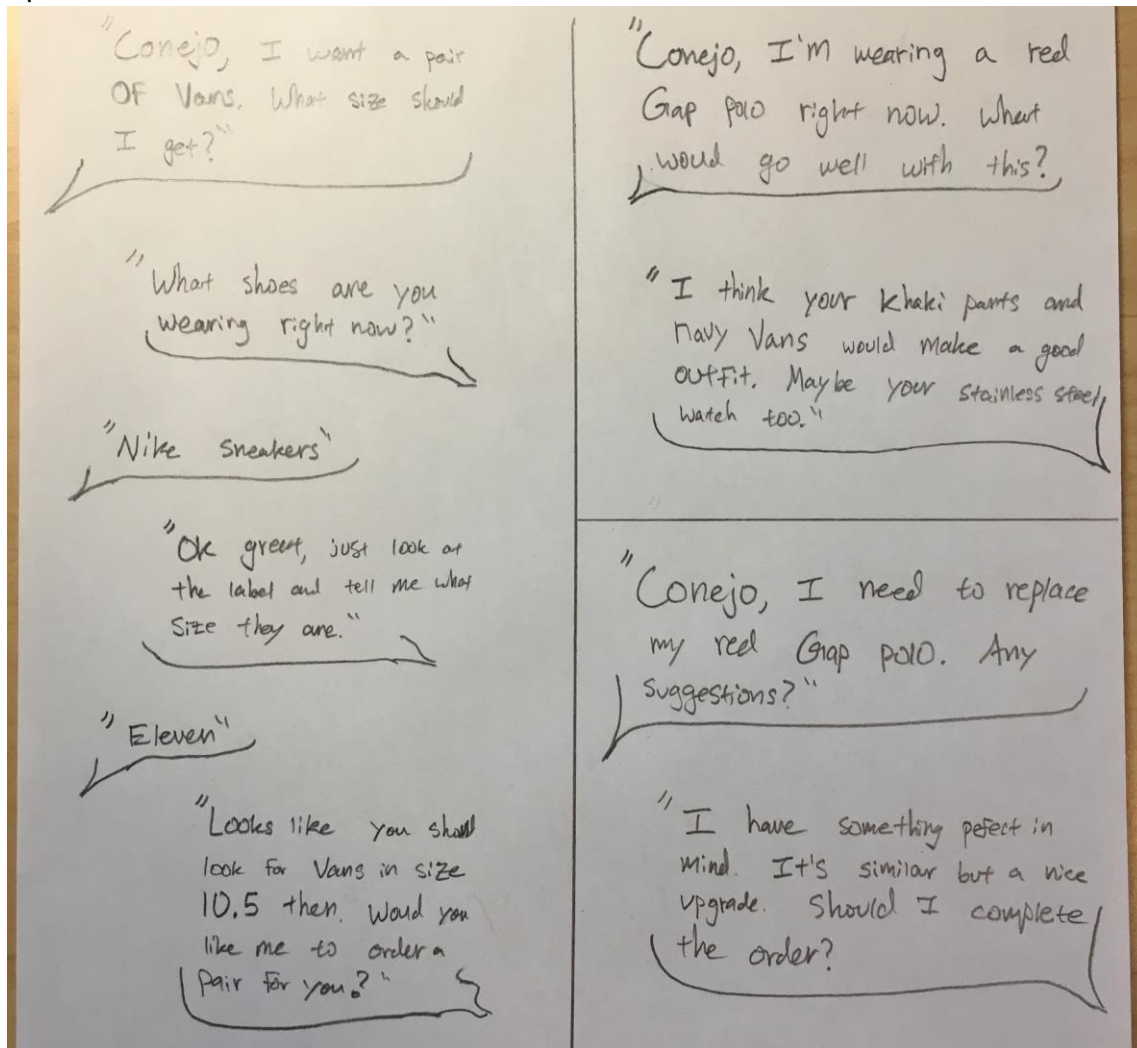 "Conejo, I want a pair
OF Vans. What size should
I get?"
"What shoes are you
wearing right now?"
"Nike sneakers"
"Ok great, just look at
the label and tell me what
size they are."
"Eleven"
"Looks like you should
look for Vans in size
10.5 then. Would you
like me to order a
pair for you?"
"Conejo, I'm wearing a red
Gap polo right now. What
would go well with this?
"I think your khaki pants and
navy Vans would make a good
outfit. Maybe your stainless steel
watch too."
"Conejo, I need to replace
my red Gap polo. Any
suggestions?"
"I have something pefect in
mind. It's similar but a nice
upgrade. Should I complete
the order?